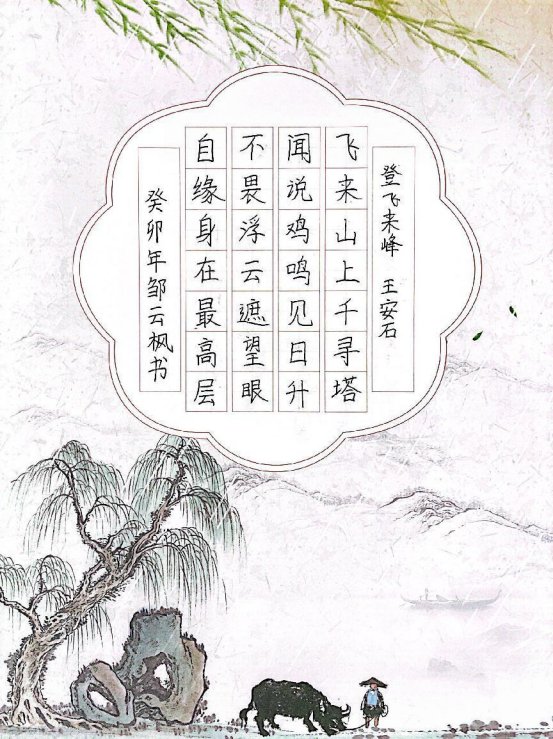 登飞来峰 王安石
飞来山上千寻塔
闻说鸡鸣见日升
不畏浮云遮望眼
自缘身在最高层
癸卯年邹云枫书